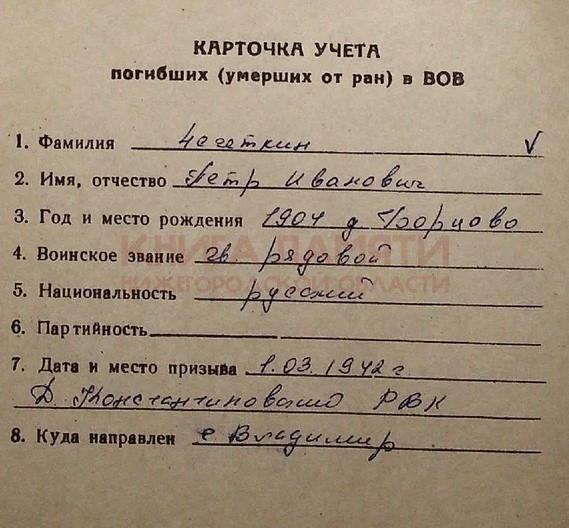 КАРТОЧКА УЧЕТА
погибших (умерших от ран) в ВОВ
1. Фамилия Чечеткин
2. Имя, отчество Петр Иванович
3. Год и место рождения 1904 д
КНИГА ПАМЯТИ
4. Воинское звание гв. рядовой
НИЖЕГОРОДСКОЙ ОБЛАСТИ
5. Национальность русский
6. Партийность
7. Дата и место призыва 1.03.1942 г
Д. Константиновского РВК
8. Куда направлен Владимир